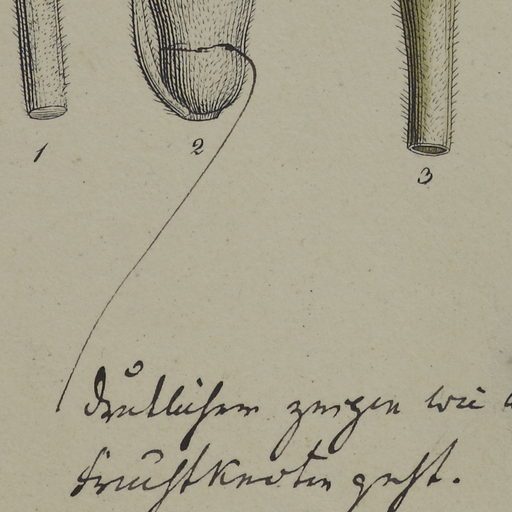 1 2 3
deutlicher zeigen wie
Fruchtknoten geht.